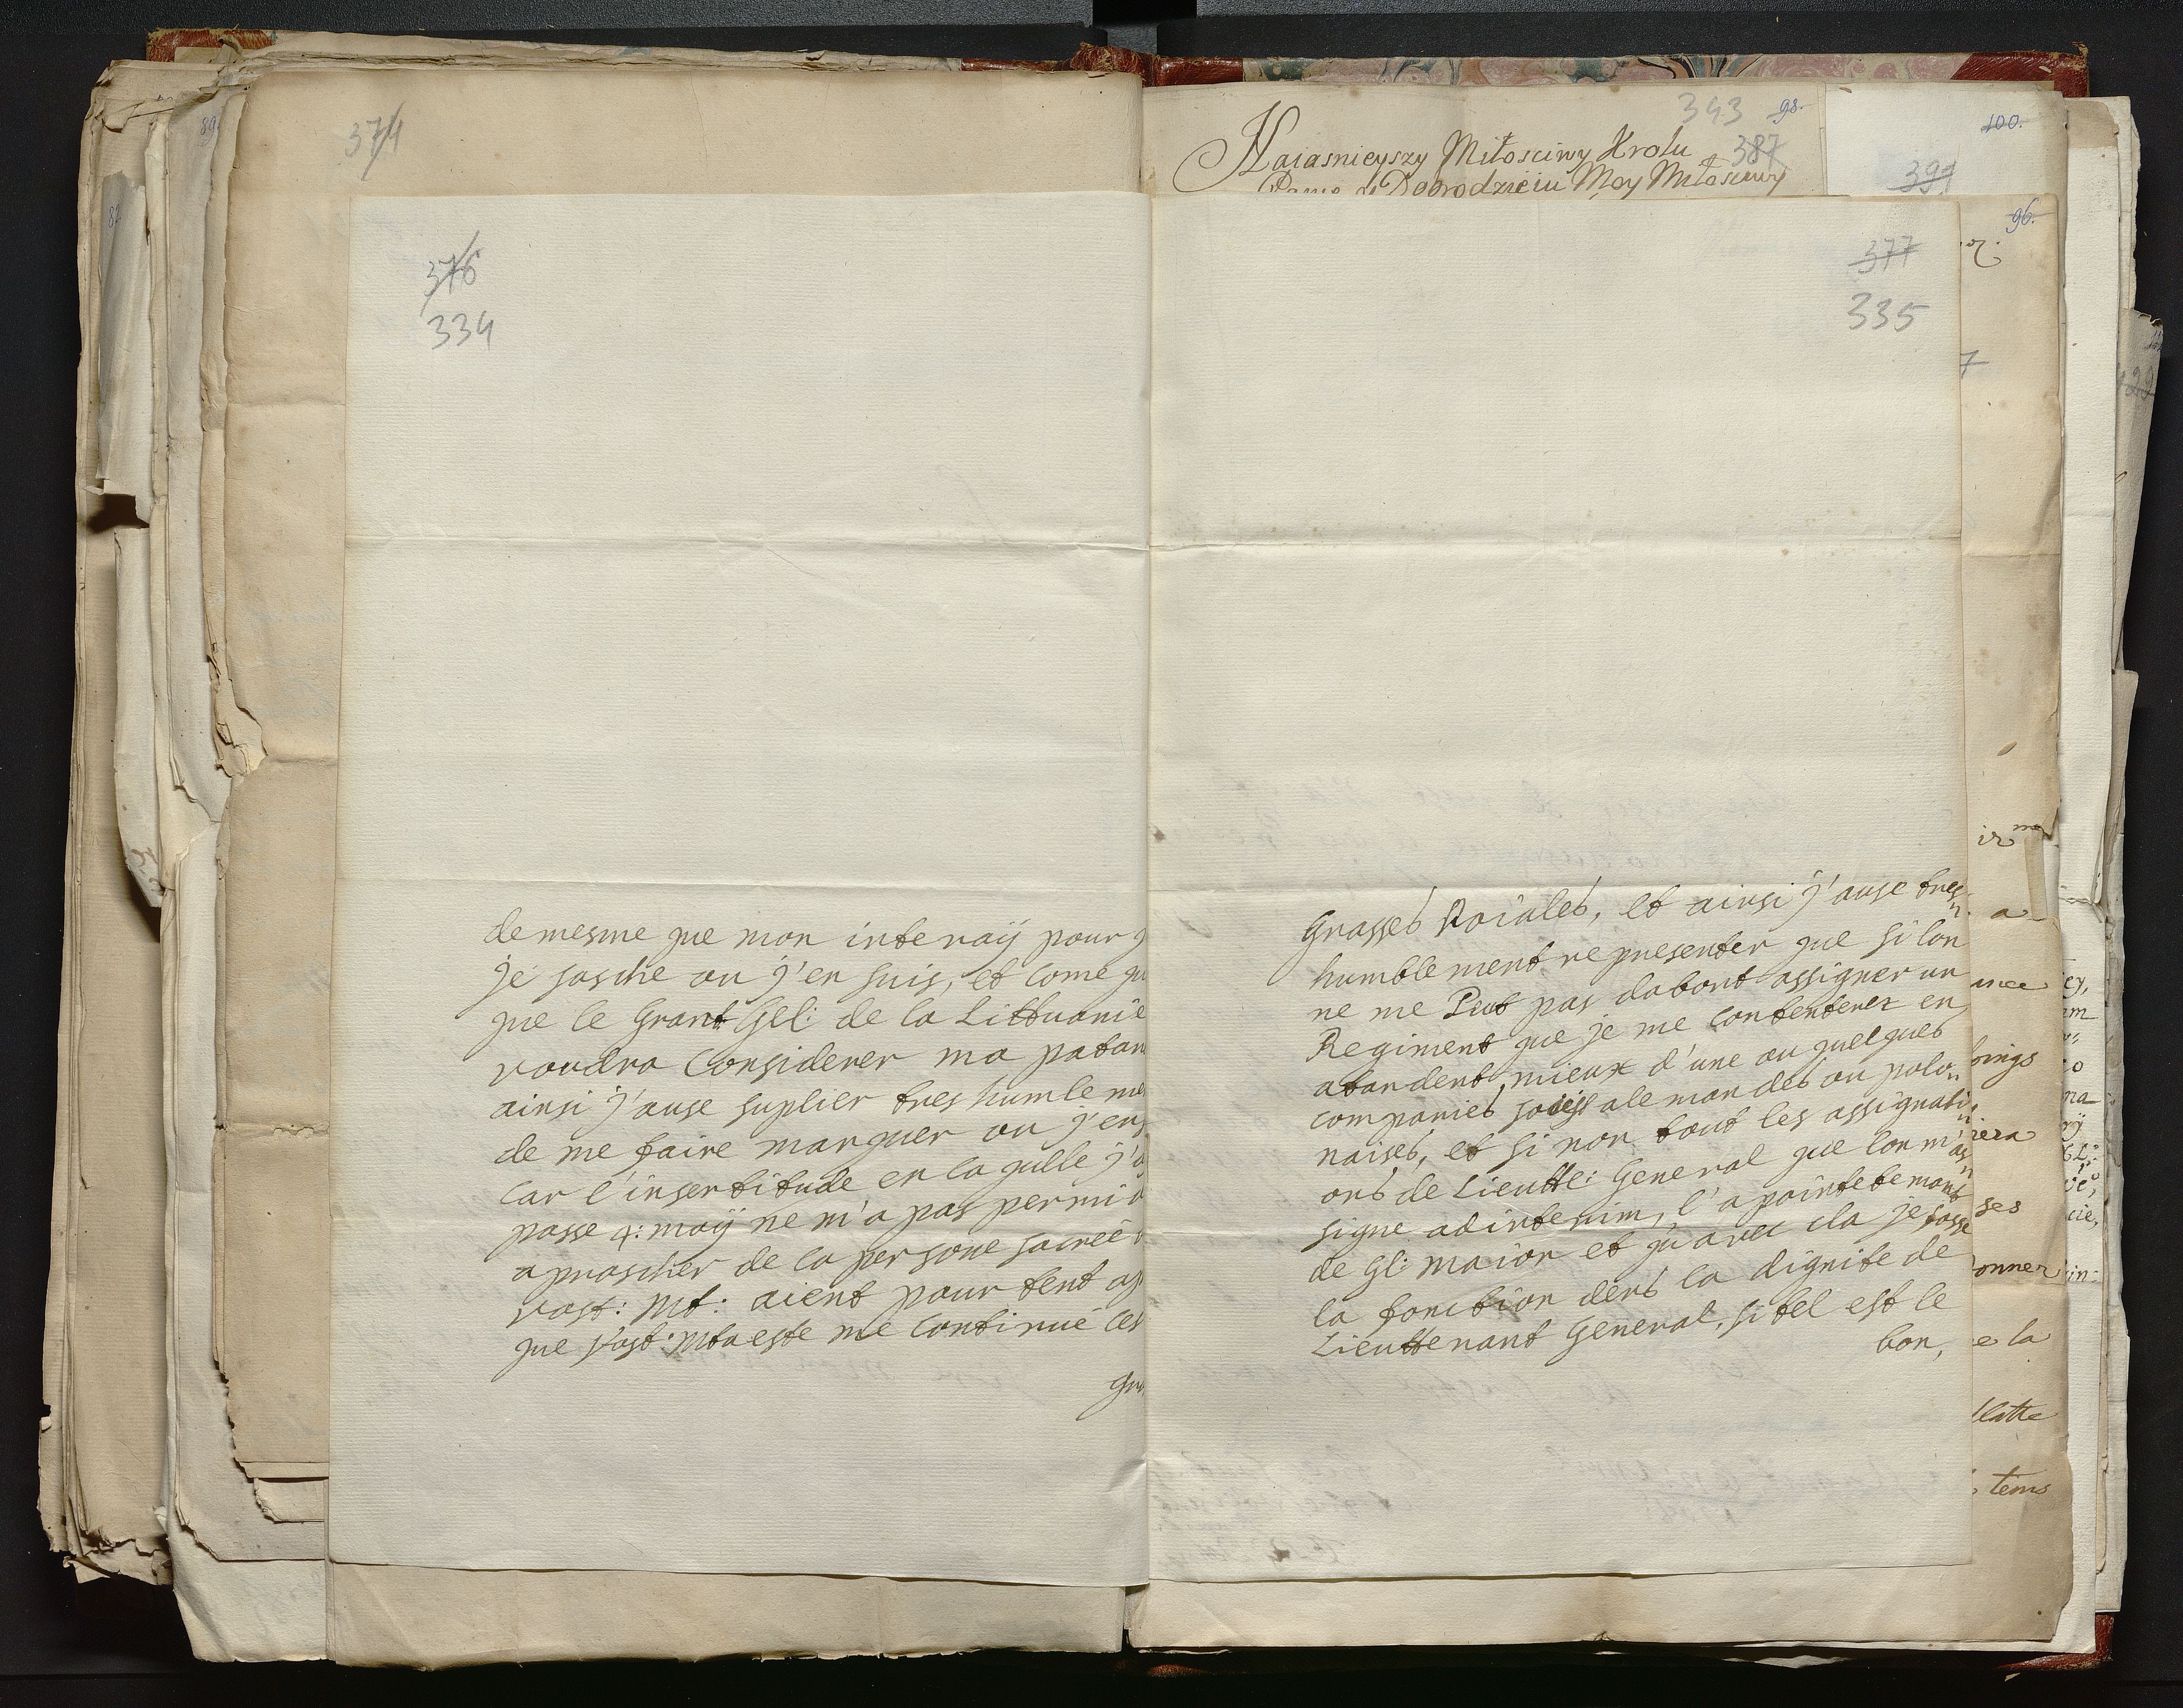 374
376
334
de mesme que mon interaÿ pour
je sasche ou j'en suis, et come
que le Grant Gel: de la Littuanie
voudra Considerer ma patan
ainsi j'ause suplier tres humleme
de me faire marquer ou j'en
Car l'insertitude en la qulle j'
passe 4: moÿ ne m'a pas permi
aprascher de la persone sacreé
vost: Mt: aient pour tent
que Vost: Mtaeste me Continué les
Gra
343 98.
Naiasnieyszy Miłosciwy Krolu 387
Dobrodzieiu Moy Miłosciwy
100.
391
96.
377
335
Grasses Roiales, et ainsi j'ause tres
humblement representer que si lon
ne me Peut pas dabort assigner un
Regiment que je me Contenterez en
atandent, mieux d'une ou quelques
companies soiest alemandes ou polo"
naises, et si non tout les assignati"
ons de Lieutte: General que lon m'as"
signe adinterim, l'apointetemant
de Gl: maior et qu'avec cla je fasse
la fonction dens la dignite de
Lieuttenant General, si tel est le
bon,
a
ance
oings
iera
ses
onner
e la
latte
tems